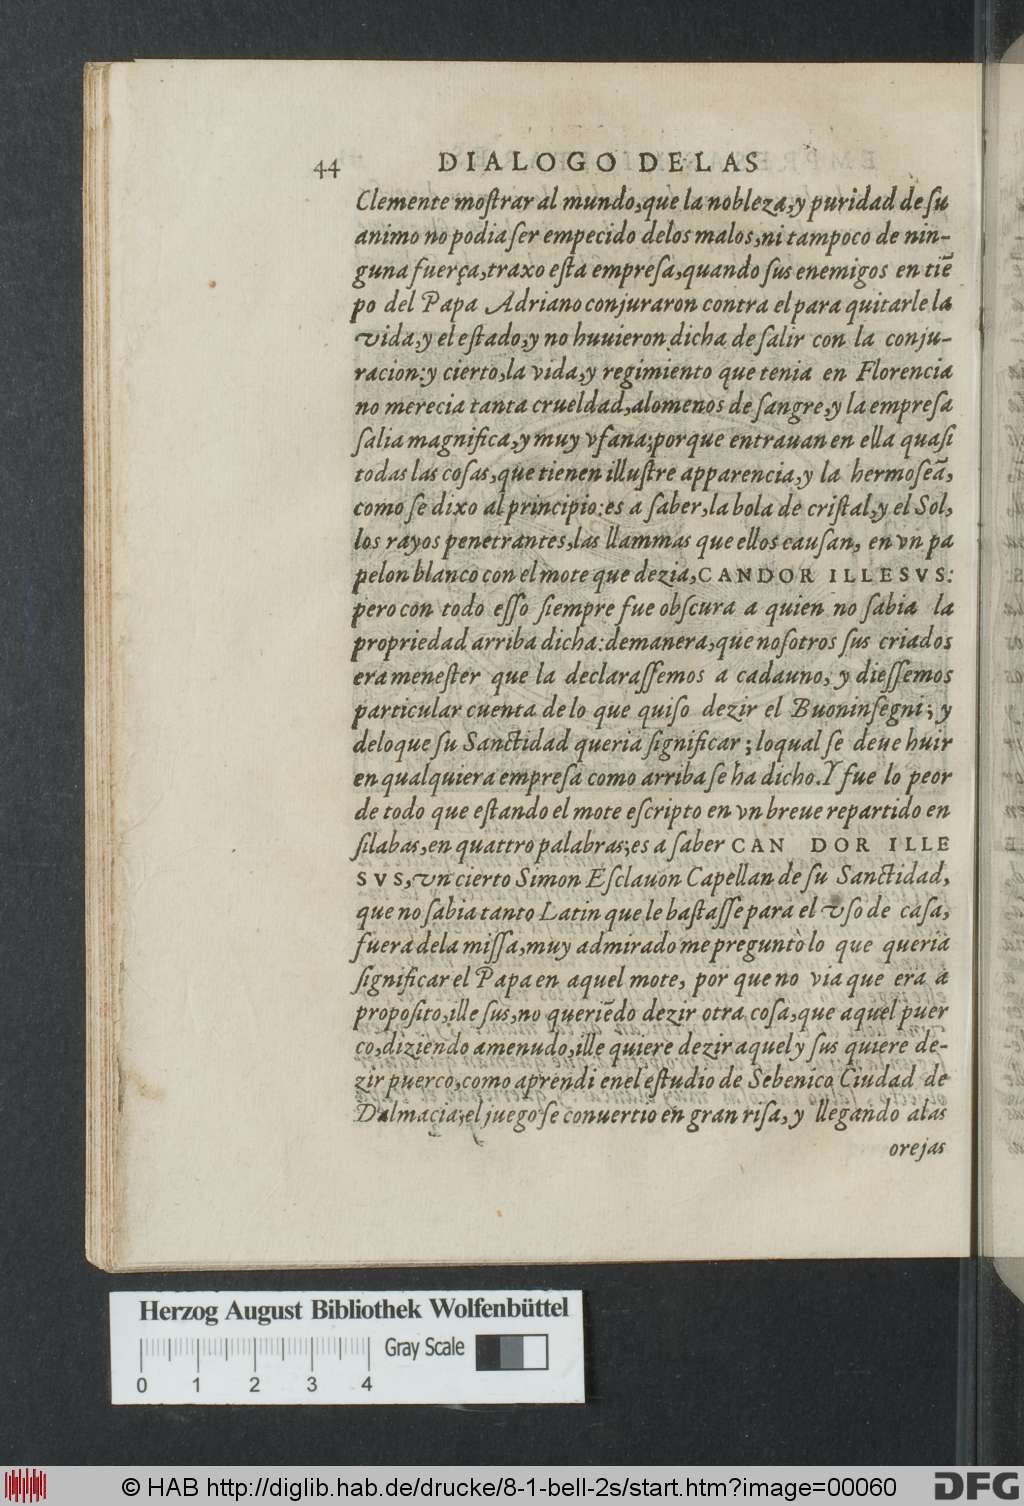 44 DIALOGO DE LAS
Clemente moſtrar al mundo,que la nobleza,y puridad de ſu
animo no podia ſer empecido delos malos,ni tampoco de nin-
guna fuerça,traxo eſta empreſa,quando ſus enemigos en tiẽ
po del Papa Adriano conjuraron contra el para quitarle la
vida,y el eſtado,y no huuieron dicha de ſalir con la conju-
racion:y cierto,la vida,y regimiento que tenia en Florencia
no merecia tanta crueldad,alomenos de ſangre,y la empreſa
ſalia magnifica,y muy vfana;porque entrauan en ella quaſi
todas las coſas,que tienen illuſtre apparencia,y la hermoſeã,
como ſe dixo al principio:es a ſaber,la bola de criſtal,y el Sol,
los rayos penetrantes,las llammas que ellos cauſan, en vn pa
pelon blanco con el mote que dezia,CANDOR ILLESVS:
pero con todo eſſo ſiempre fue obſcura a quien no ſabia la
propriedad arriba dicha:demanera,que noſotros ſus criados
era meneſter que la declaraſſemos a cadauno, y dieſſemos
particular cuenta de lo que quiſo dezir el Buoninſegni; y
deloque ſu Sanctidad queria ſignificar; loqual ſe deue huir
en qualquiera empreſa como arriba ſe ha dicho.Y fue lo peor
de todo que eſtando el mote eſcripto en vn breue repartido en
ſilabas,en quattro palabras;es a ſaber CAN DOR ILLE
SVS,vn cierto Simon Eſclauon Capellan de ſu Sanctidad,
que no ſabia tanto Latin que le baſtaſſe para el vſo de caſa,
fuera dela miſſa,muy admirado me preguntò lo que queria
ſignificar el Papa en aquel mote, por que no via que era a
propoſito,ille ſus,no queriẽdo dezir otra coſa,que aquel puer
co,diziendo amenudo,ille quiere dezir aquel y ſus quiere de-
zir puerco,como aprendi enel eſtudio de Sebenico Ciudad de
Dalmacia;el juego ſe conuertio en gran riſa, y llegando alas
orejas
Herzog August Bibliothek Wolfenbüttel
Gray Scale
0 1 2 3 4
© HAB http://diglib.hab.de/drucke/8-1-bell-2s/start.htm?image=00060
DFG